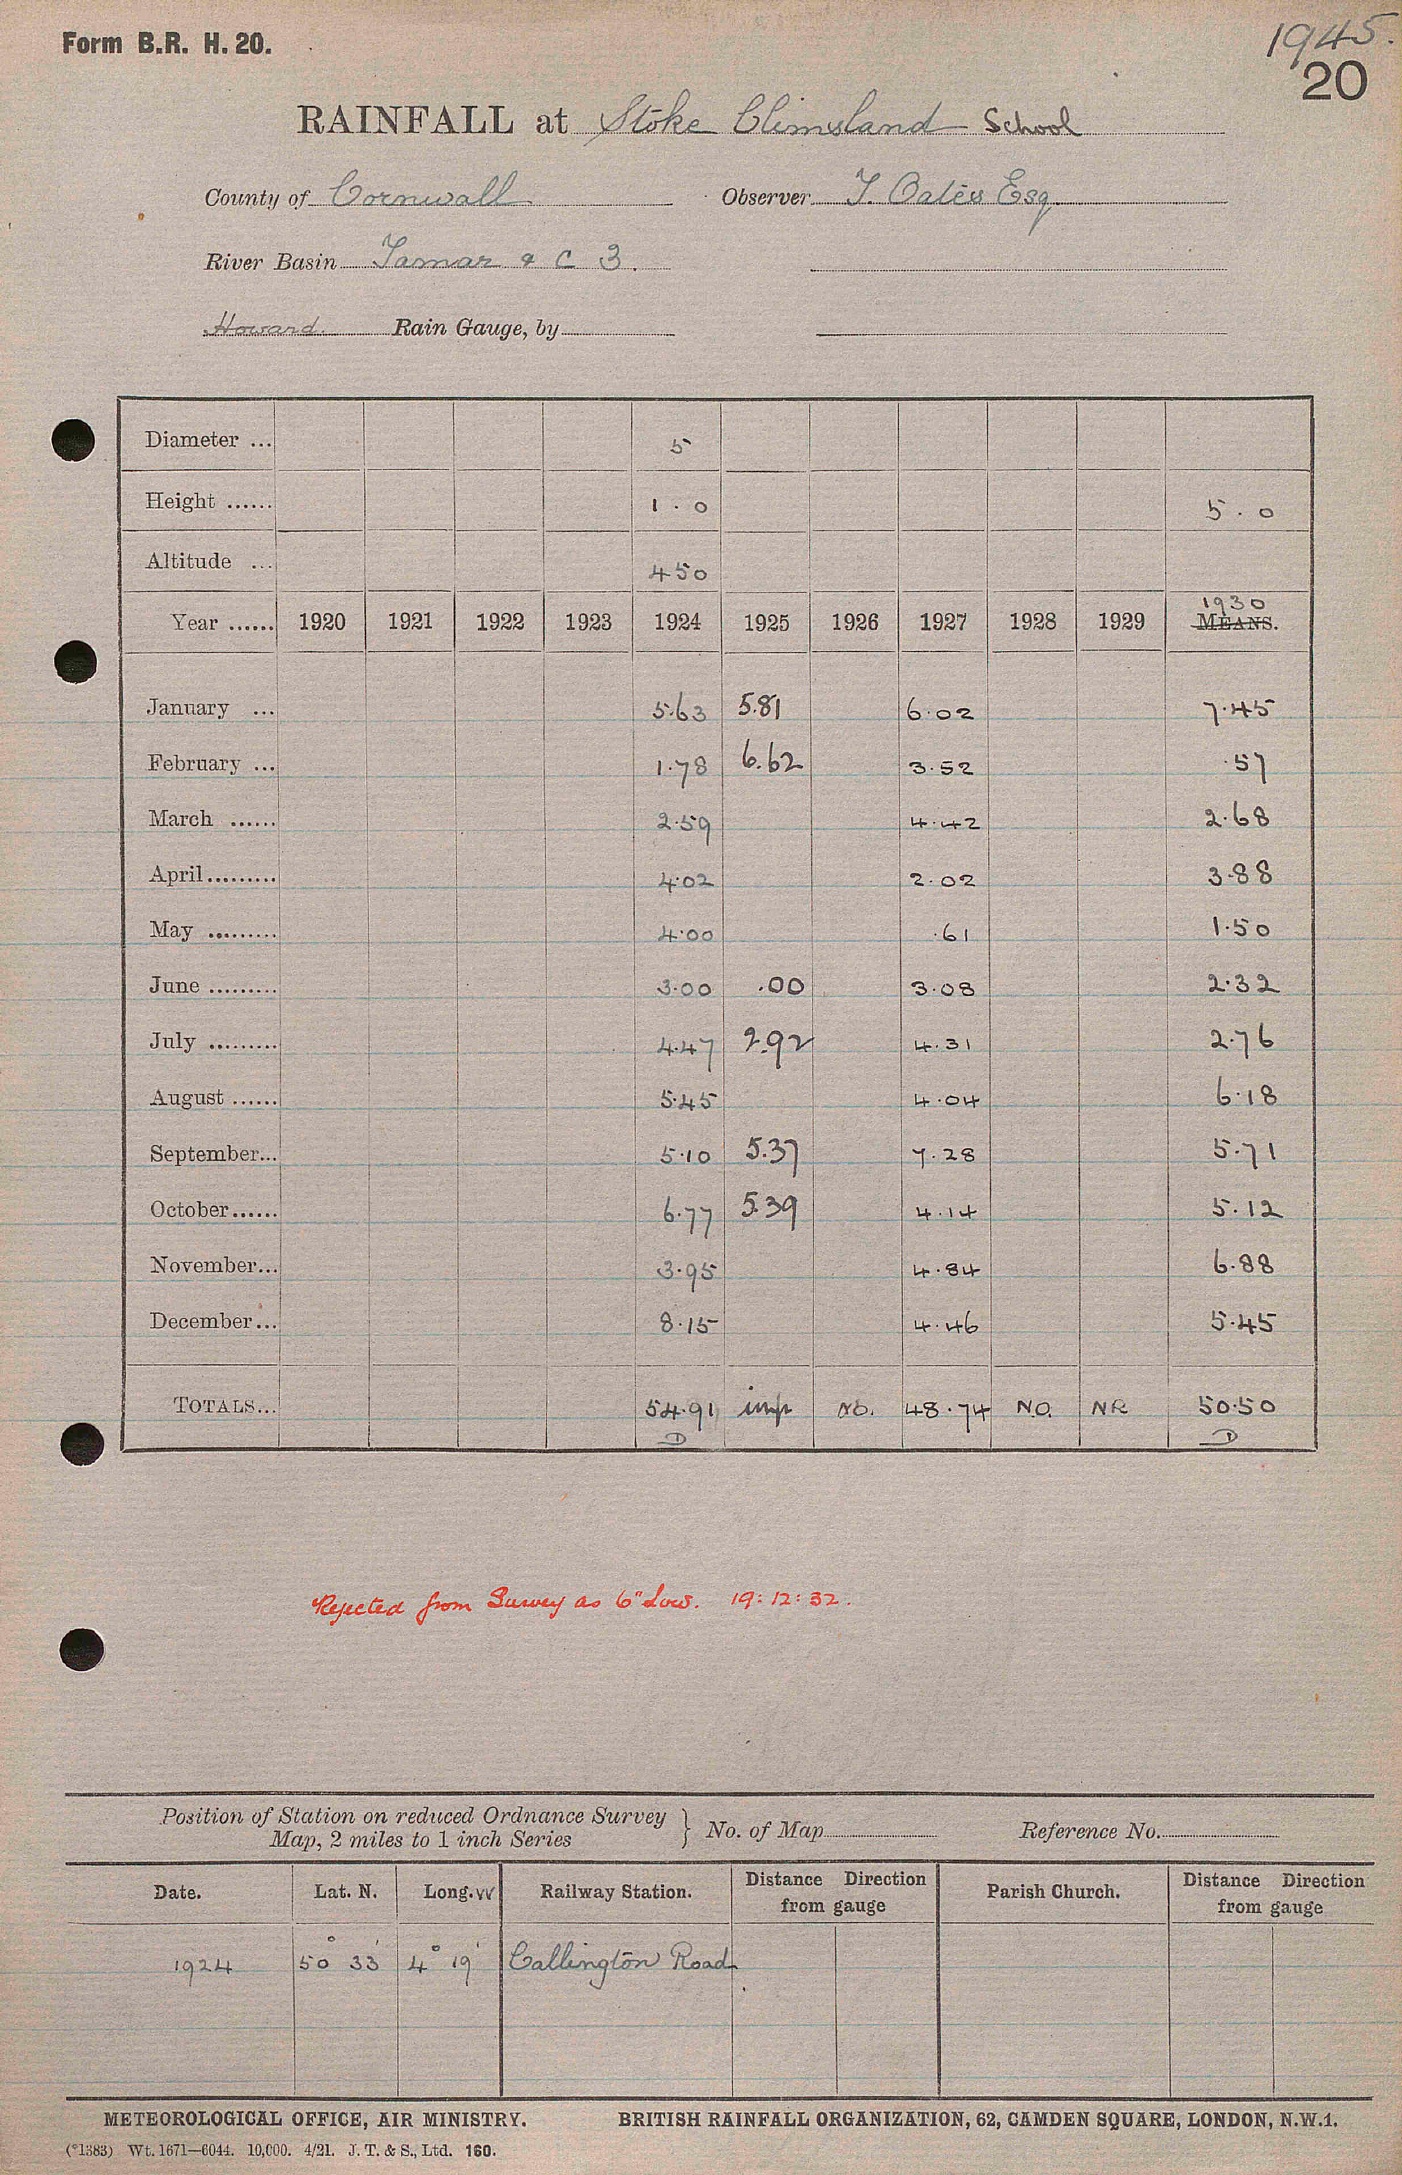 Form B.R. H. 20.
1945.
20
RAINFALL at Stoke Climsland School
County of Cornwall Observer T. Oates Esq
River Basin Tamar & C 3.
Howard. Rain Gauge, by
Diameter ... 5
Height ...... 1.0 5.0
Altitude ... 450
1930
Year ...... 1920 1921 1922 1923 1924 1925 1926 1927 1928 1929 MEANS.
January ... 5.63 5.81 6.02 7.45
February ... 1.78 6.62 3.52 .57
March ...... 2.59 4.42 2.68
April ......... 4.02 2.02 3.88
May ......... 4.00 .61 1.50
June ......... 3.00 .00 3.08 2.32
July ......... 4.47 2.92 4.31 2.76
August ...... 5.45 4.04 6.18
September... 5.10 5.37 7.28 5.71
October...... 6.77 5.39 4.14 5.12
November... 3.95 4.84 6.88
December... 8.15 4.46 5.45
TOTALS... 54.91 imp NO. 48.74 N.O. NR 50.50
D D
Rejected from Survey as 6" Low. 19:12:32.
Position of Station on reduced Ordnance Survey
Map, 2 miles to 1 inch Series } No. of Map Reference No.
Date. Lat. N. Long. W Railway Station. Distance Direction from gauge Parish Church. Distance Direction from gauge
1924 50° 33' 4° 19' Callington Road
METEOROLOGICAL OFFICE, AIR MINISTRY. BRITISH RAINFALL ORGANIZATION, 62, CAMDEN SQUARE, LONDON, N.W.1.
(*1383) Wt. 1671—6044. 10,000. 4/21. J. T. & S., Ltd. 160.